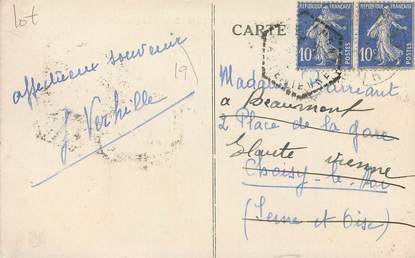 Lot
affectueux souvenir
J. Verhille
19
CARTE
RÉPUBLIQUE FRANÇAISE
10c POSTES
RÉPUBLIQUE FRANÇAISE
10c POSTES
Madame
a Beaumont
2 Place de la gare
Haute Vienne
Choisy-le-Roi
(Seine et Oise)